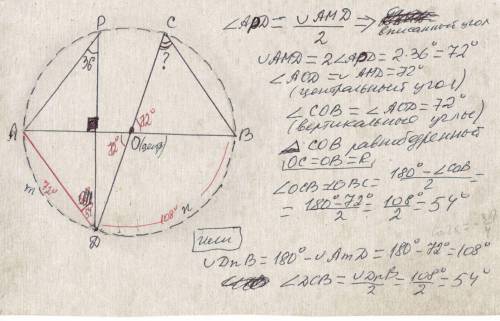 P
C
36°
?
A
72°
O(центр)
B
72°
m
108°
n
D
∠APD = ∪AMD/2 ⇒
вписанный угол
∪AMD = 2∠APD = 2·36° = 72°
∠AOD = ∪AMD = 72°
(центральный угол)
∠COB = ∠AOD = 72°
(вертикальные углы)
△COB равнобедренный
OC=OB=R
∠OCB=∠OBC= 180°-∠COB/2 =
= 180°-72°/2 = 108°/2 = 54°
или
∪DnB = 180° - ∪AmD = 180° - 72° = 108°
∠DCB = ∪DnB/2 = 108°/2 = 54°